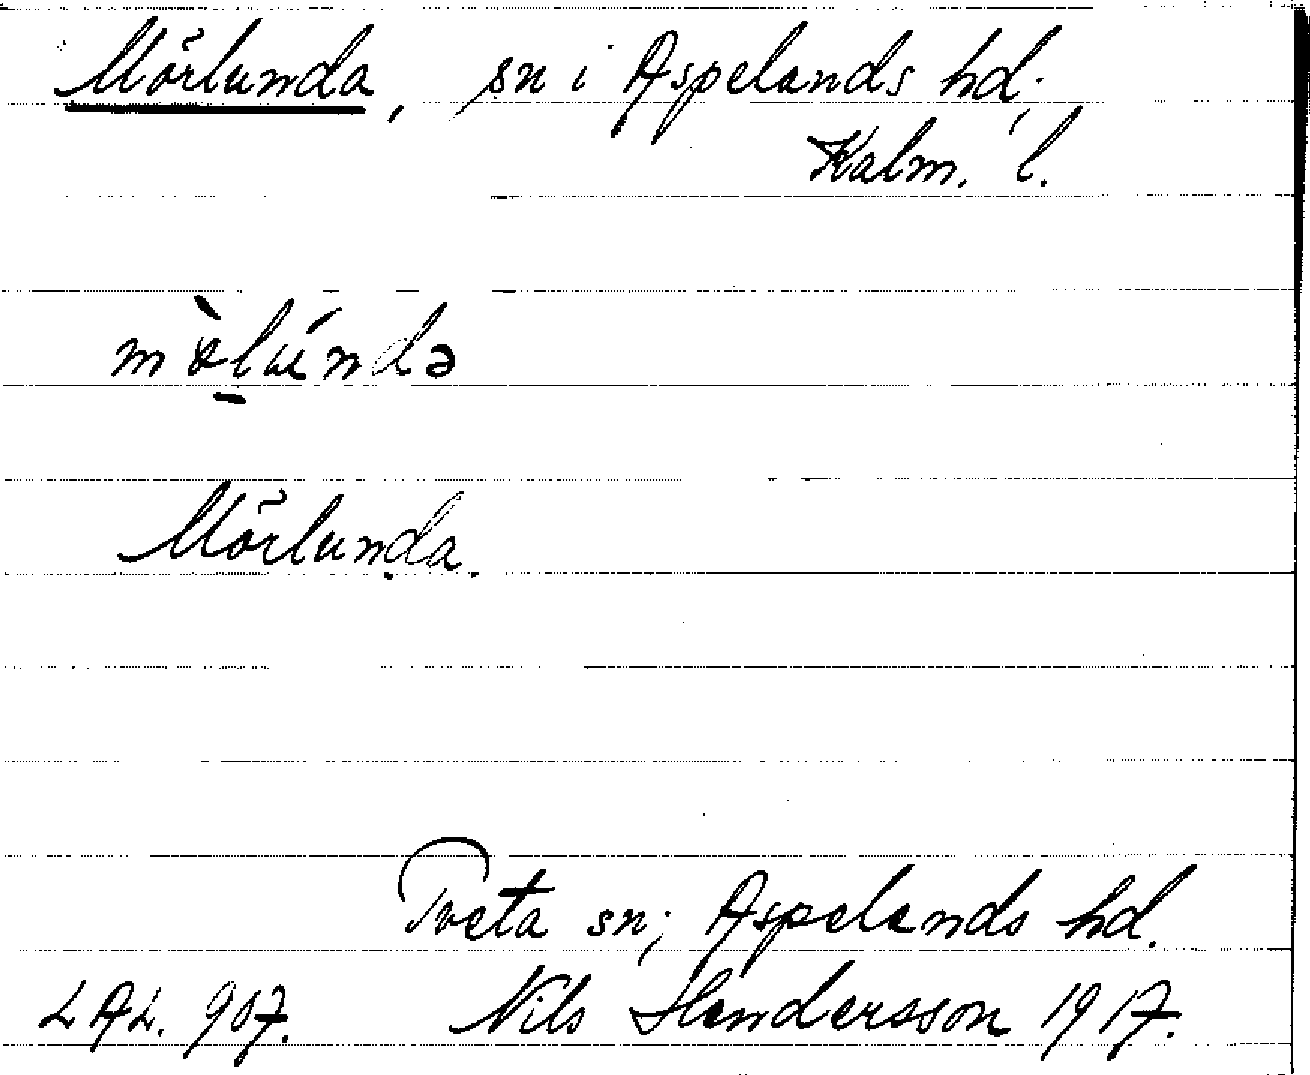 Mörlunda, sn i Aspelands hd;
Kalm. l.
Mörlunda.
Tveta sn; Aspelands hd.
LAL. 907. Nils Hendersson 1917.